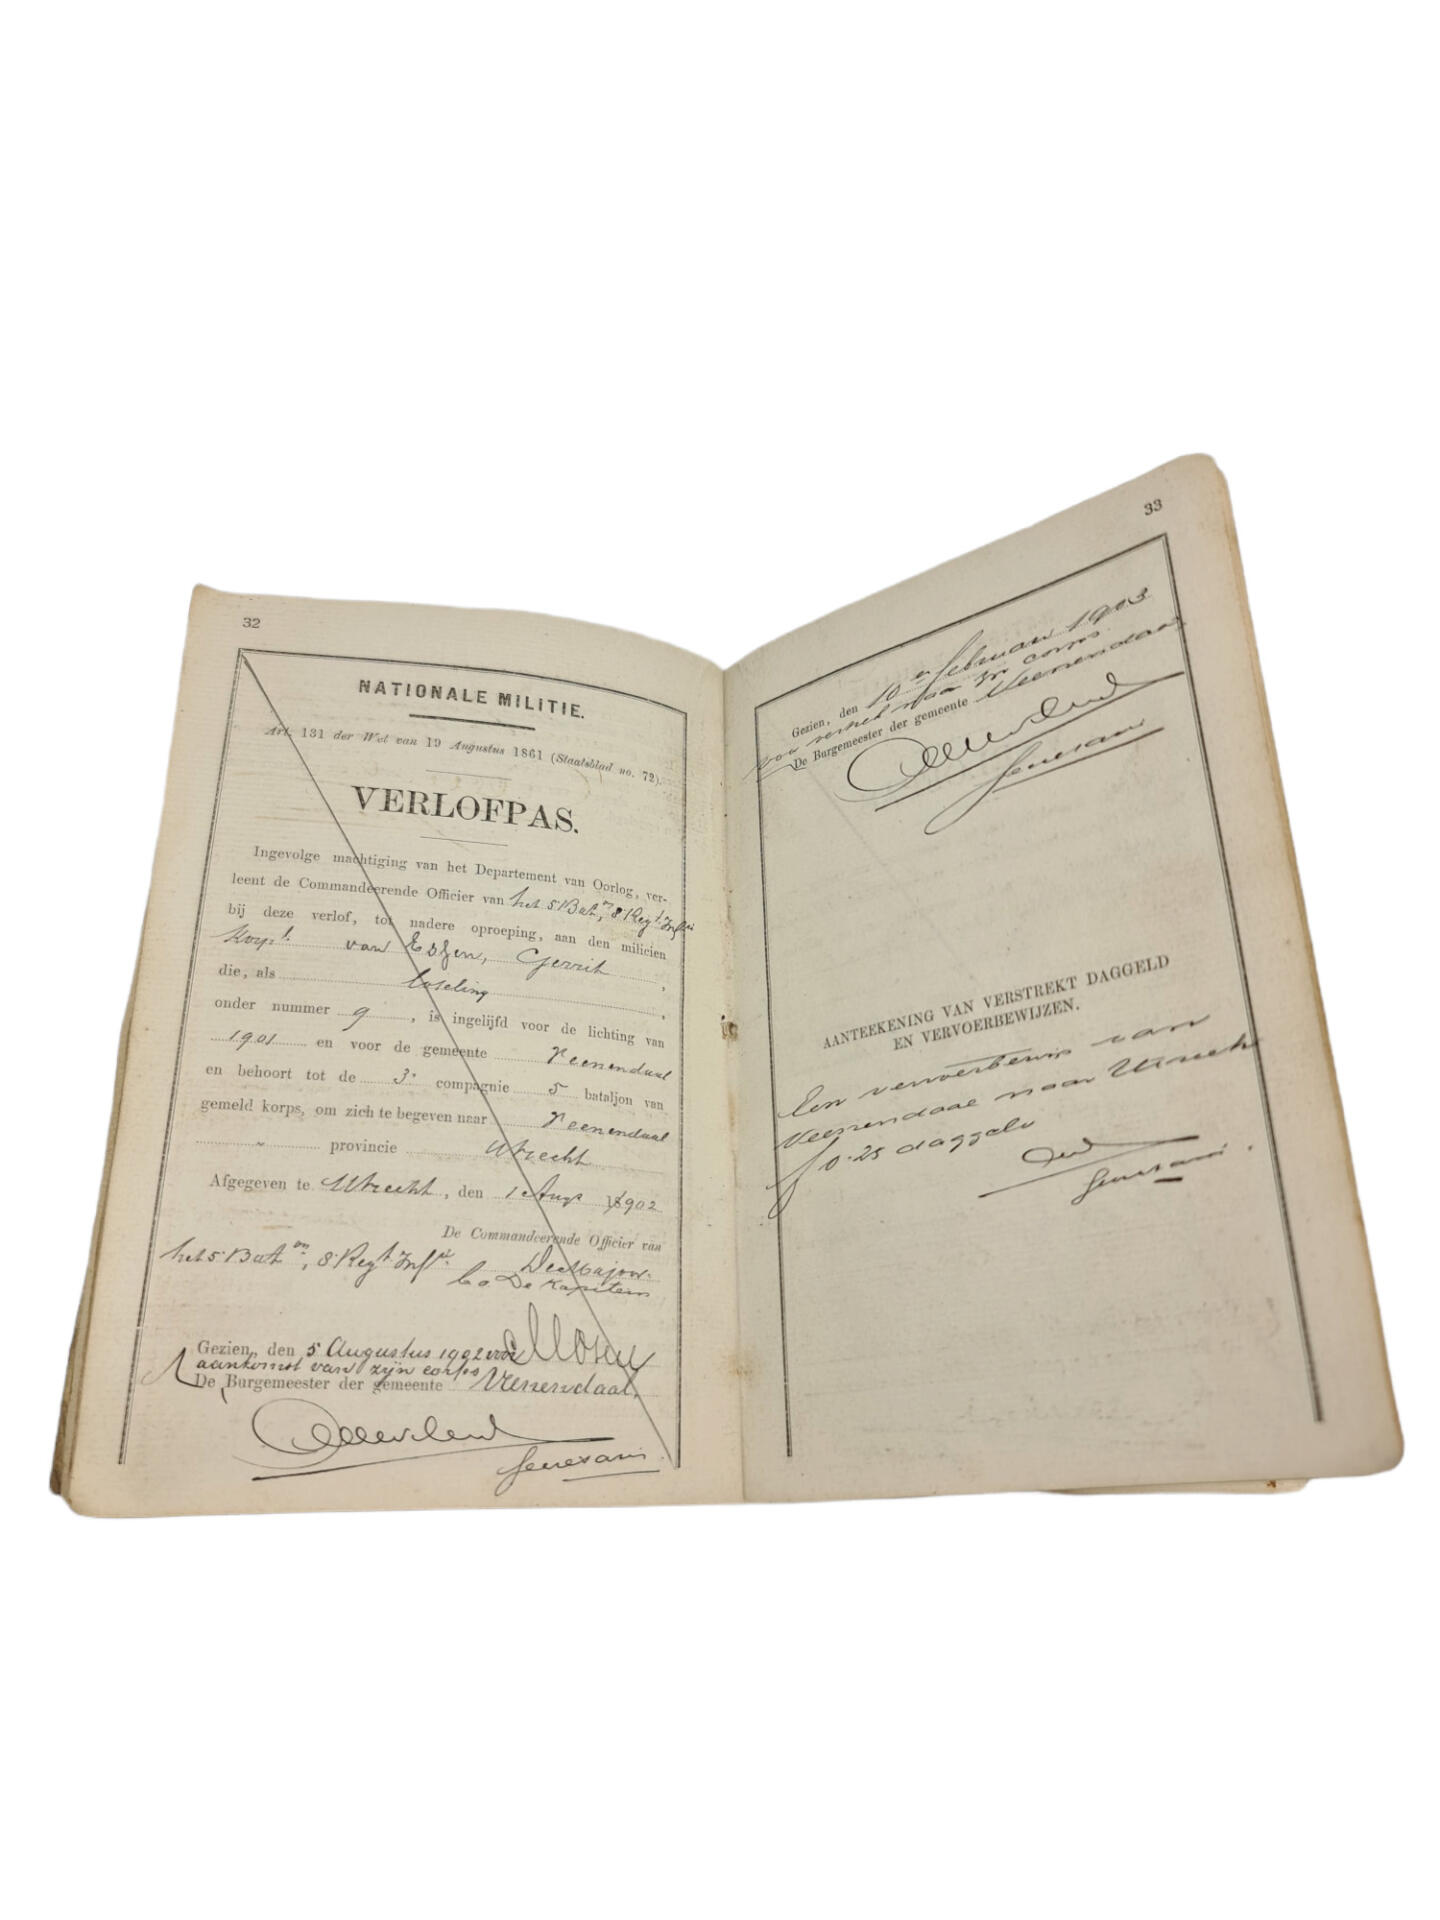 32
NATIONALE MILITIE.
Art. 131 der Wet van 19 Augustus 1861 (Staatsblad no. 72).
VERLOFPAS.
Ingevolge machtiging van het Departement van Oorlog, ver-
leent de Commandeerende Officier van het 5 Bat.n, 8 Regt. Inf.
bij deze verlof, tot nadere oproeping, aan den milicien
Korpl. van Essen, Gerrit,
die, als loteling,
onder nummer 9, is ingelijfd voor de lichting van
1901 en voor de gemeente Veenendaal
en behoort tot de 3e compagnie 5 bataljon van
gemeld korps, om zich te begeven naar Veenendaal
" provincie Utrecht
Afgegeven te Utrecht, den 1 Aug. 1902
De Commandeerende Officier van
het 5 Bat.on, 8 Regt. Inf.ie De Majoor
De Kapitein
Gezien, den 5 Augustus 1902 voor
aankomst van zijn corps
De Burgemeester der gemeente Veenendaal,
33
Gezien, den 10en februari 1903
voor vertrek naar zijn corps.
De Burgemeester der gemeente Veenendaal
AANTEEKENING VAN VERSTREKT DAGGELD
EN VERVOERBEWIJZEN.
Een vervoerbewijs van
Veenendaal naar Utrecht
f 0.25 daggeld